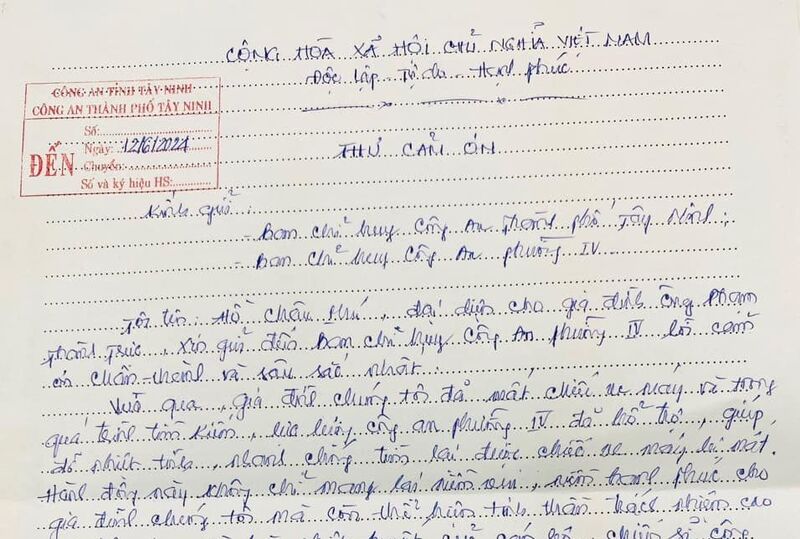 CỘNG HÒA XÃ HỘI CHỦ NGHĨA VIỆT NAM
Độc lập - Tự do - Hạnh phúc
CÔNG AN TỈNH TÂY NINH
CÔNG AN THÀNH PHỐ TÂY NINH
ĐẾN
Số:
Ngày: 12/6/2024
Chuyển:
Số và ký hiệu HS:
THƯ CẢM ƠN
Kính gửi:
- Ban chỉ huy Công An thành phố Tây Ninh;
- Ban chỉ huy Công An phường IV
Tôi tên: Hồ Châu, đại diện cho gia đình ông Phạm
Thành Trức, xin gửi đến Ban chỉ huy Công An phường IV lời cảm
ơn chân thành và sâu sắc nhất.
Vừa qua, gia đình chúng tôi đã mất chiếc xe máy và trong
quá trình tìm kiếm, lực lượng công an phường IV đã hỗ trợ, giúp
đỡ nhiệt tình, nhanh chóng tìm lại được chiếc xe máy bị mất.
Hành động này không chỉ mang lại niềm vui, niềm hạnh phúc cho
gia đình chúng tôi mà còn thể hiện tinh thần trách nhiệm cao
cán bộ, chiến sĩ công